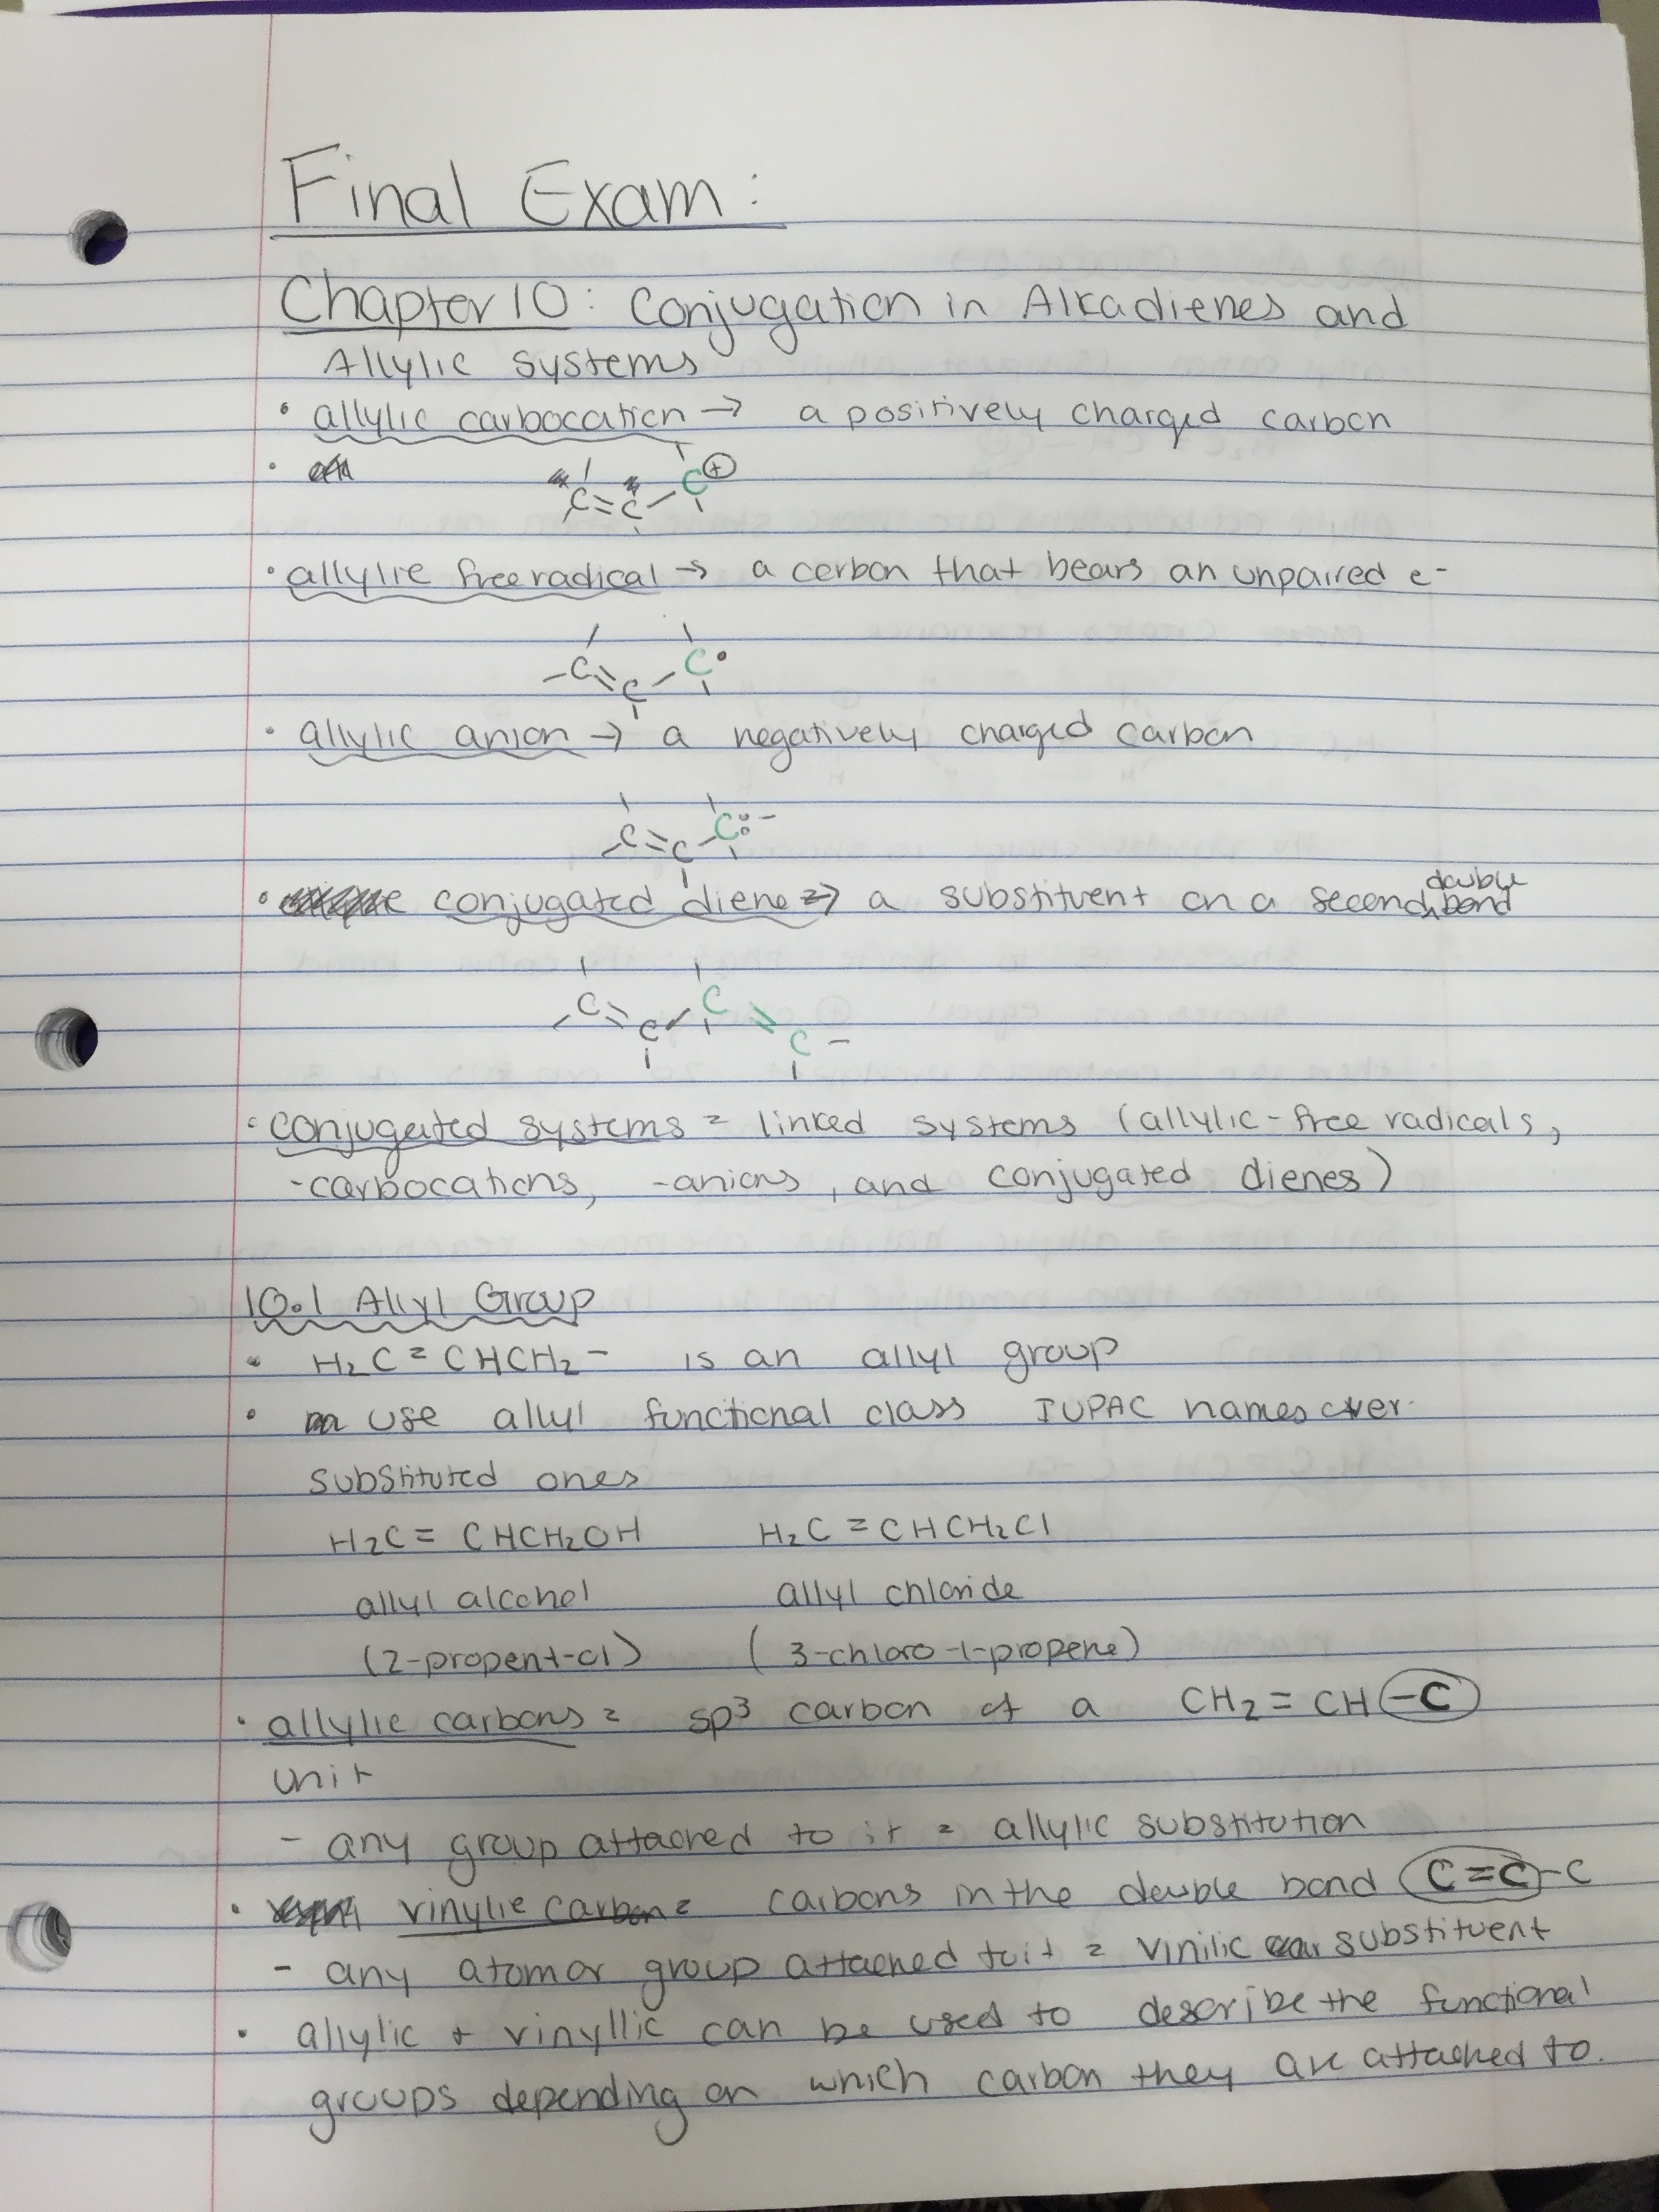 Final Exam:
Chapter 10: Conjugation in Alkadienes and
Allylic systems
• allylic carbocation → a positively charged carbon
•
C=C-C⊕
• allylic free radical → a carbon that bears an unpaired e-
-C=C-C•
• allylic anion → a negatively charged carbon
-C=C-C:-
• conjugated diene → a substituent on a second double bond
-C=C-C=C-
• conjugated systems = linked systems (allylic-free radicals,
-carbocations, -anions, and conjugated dienes)
10.1 Allyl Group
• H₂C=CHCH₂- is an allyl group
• use allyl functional class IUPAC names over
substituted ones
H₂C=CHCH₂OH H₂C=CHCH₂Cl
allyl alcohol allyl chloride
(2-propen-1-ol) (3-chloro-1-propene)
• allylic carbons = sp³ carbon of a CH₂=CH-C
unit
- any group attached to it = allylic substitution
• vinylic carbon = carbons in the double bond C=C-C
- any atom or group attached to it = vinilic substituent
• allylic + vinyllic can be used to describe the functional
groups depending on which carbon they are attached to.